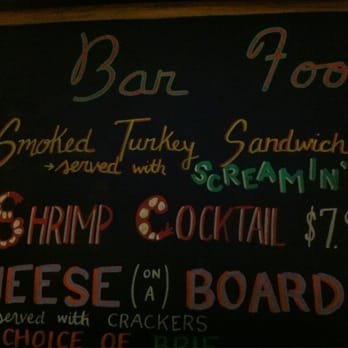 Bar Foo
Smoked Turkey Sandwich
→served with SCREAMIN'
SHRIMP COCKTAIL $7.
HEESE (ON A) BOARD
served with CRACKERS
CHOICE OF BRIE